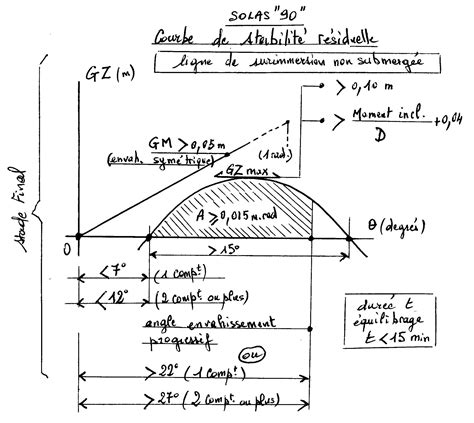 SOLAS "90"
Courbe de stabilité résiduelle
ligne de surimmersion non submergée
GZ (m)
> 0,10 m
> Moment incl. / D + 0,04
GM > 0,05 m
(envah. symétrique)
(1 rad.)
GZ max
A ≥ 0,015 m.rad
θ (degrés)
0
> 15°
< 7° (1 compt)
< 12° (2 compt ou plus)
angle envahissement
progressif
ou
> 22° (1 compt)
> 27° (2 compt ou plus)
durée t
équilibrage
t < 15 min
Stade Final